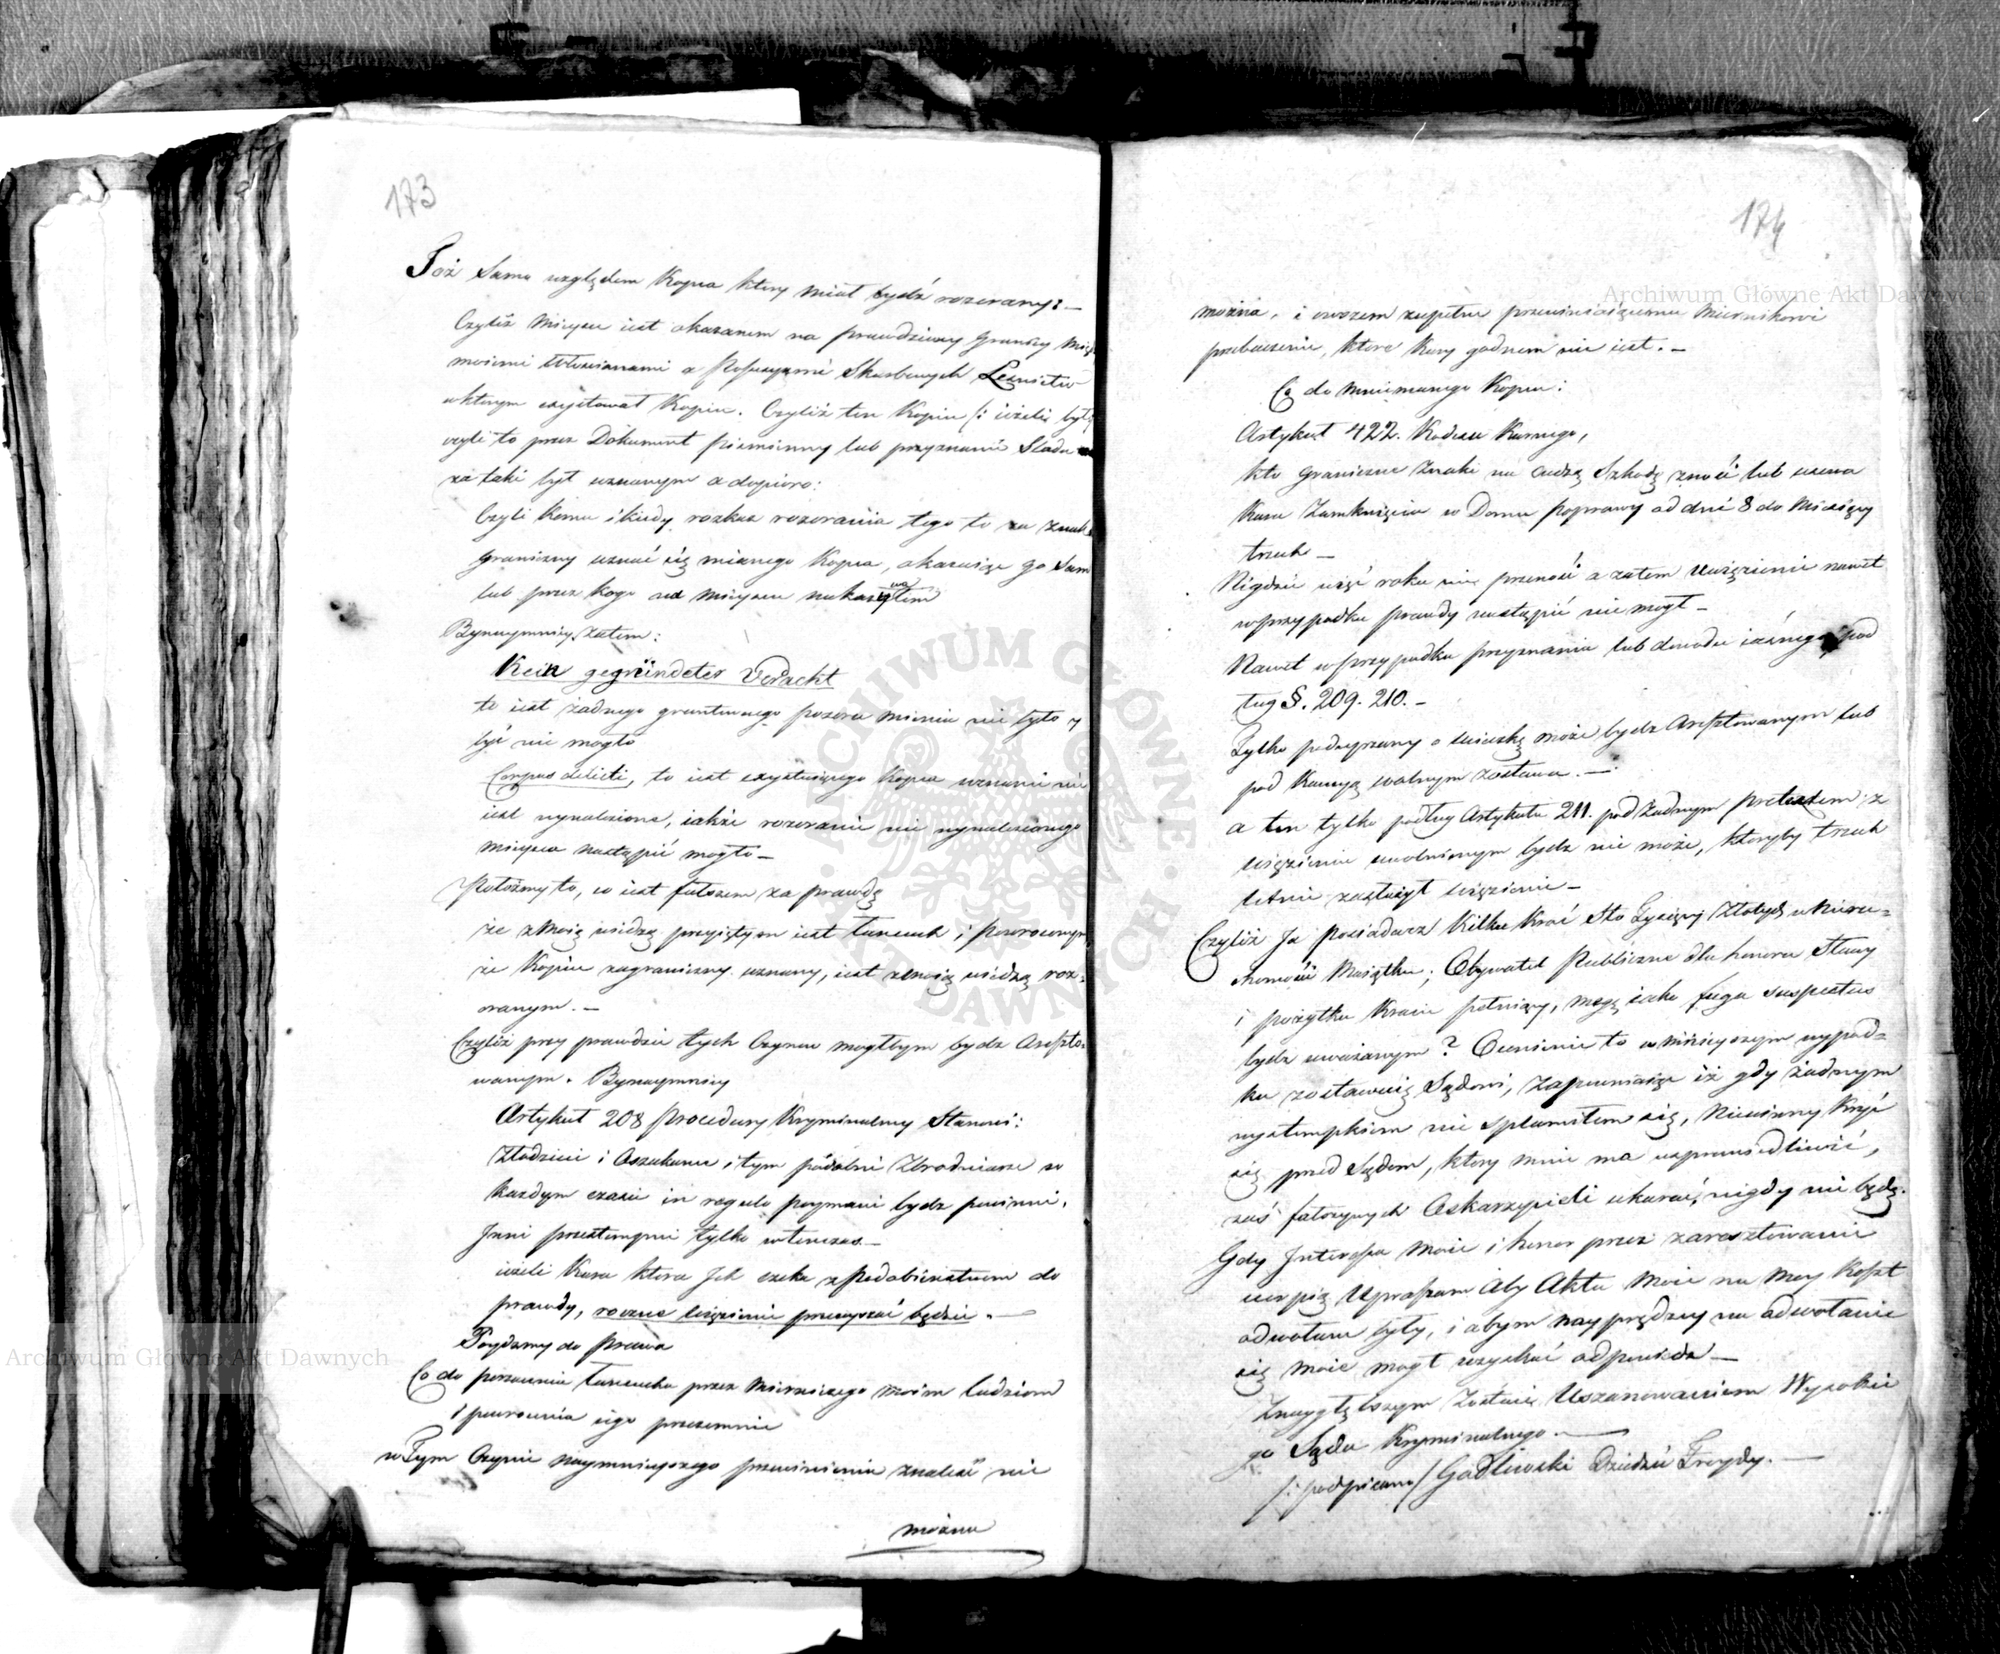 173
Toż Samo względem Kopca który miał bydź rozorany: –
Czyliż Mieysce iest okazanem na prawdziwey Granicy
moiemi Włościanami a Possessyami Skarbowych Leśnictw
w którym exystował Kopiec. Czyliż ten Kopiec /: ieżeli był
czyli to przez Dokument piśmienny lub przyznanie Sladu
za taki był uznanym a dopiero:
Czyli komu i kiedy rozkaz rozorania tego to za znak
graniczny uznać się mianego Kopca, okazuiąc go Sam
lub przez kogo na Mieyscu
Bynaymniey zatem:
Kein gegründeter Verdacht
to iest żadnego gruntownego pozoru mienia nie było y
być nie mogło
Corpus delicti, to iest exystuiącego Kopca uznanie nie
iest wynalezione, iakże rozoranie nie wynalezionego
mieysca nastąpić mogło –
Położmy to, co iest fałszem za prawdę
że z moią wiedzą przyiętym iest Łancuch i powroconym
że Kopiec zagraniczny uznany, iest z moią wiedzą roz-
oranym. –
Czyliż przy prawdzie tych Czynow mogłbym bydz Areszto-
wanym. Bynaymniey
Artykuł 208 procedury Kryminalney Stanowi:
Złodzieie i Oszukance i tym podobni Zbrodniarze w
każdym czasie in regula poymani bydz powinni.
Inni przestempni tylko wtenczas –
ieżeli Kara ktora Ich czeka z podobieństwem do
prawdy, roczne więzienie przewyszać będzie. –
Poydzmy do prawa
Co do porzucenia Łancucha przez Mierniczego moim ludziom
i powrocenia iego przezemnie
w Tym Czynie naymnieyszego przewinienia znaleść nie
można
174
można, i owszem zupełne przewiniaiącemu Miernikowi
przebaczenie, ktore Kary godnem nie iest. –
Co do mniemanego Kopca:
Artykuł 422. Kodexu Karnego,
kto graniczne Znaki na cudzą Szkodę znosi lub usuwa
Kara Zamknięcia w Domu poprawy od dni 8 do Miesięcy
trzech –
Nigdzie więc roku nie przenosi a zatem Uwięzienie nawet
w przypadku prawdy nastąpić nie mogł –
Nawet w przypadku przyznania lub dowodu iasnego pod
ług §. 209. 210. –
Tylko podeyrzany o ucieczkę może bydz Aresztowanym lub
pod Kaucyą wolnym zostawa. –
a ten tylko podług Artykułu 211. pod żadnym pretextem z
więzienia uwolnionym bydz nie może, ktoryby trzech
letnie zasłużył więzienie –
Czyliż Ja Posiadacz kilku kroć Sto Tysięcy Złotych w Nieru-
chomości Maiątku, Obywatel Publiczne dla honoru Sławy
i pożytku Kraiu pełniący, mogę iako fuga suspectus
bydz uważanym? Ocenienie to w ninieyszym wypad-
ku zostawuię Sądowi, zapewniaiąc iż gdy żadnym
wystempkiem nie splamiłem się, Niewinny Kryć
się przed Sądem, ktory mnie ma usprawiedliwić,
zaś fałszywych Oskarzycieli ukarać, nigdy nie będę.
Gdy Interessa Moie i honor przez zaresztowanie
cierpią Upraszam Aby Akta Moie na Moy Koszt
odwołane były, i abym nayprędzey na odwołanie
się moie mogł uzyskać odpowiedz –
Znaygłębszym Zostaię Uszanowaniem Wysokie
go Sądu Kryminalnego. –
/: podpisano / Godlewski Dziedzic Fredy. –
ARCHIWUM GŁÓWNE AKT DAWNYCH
Archiwum Główne Akt Dawnych
Archiwum Główne Akt Dawnych